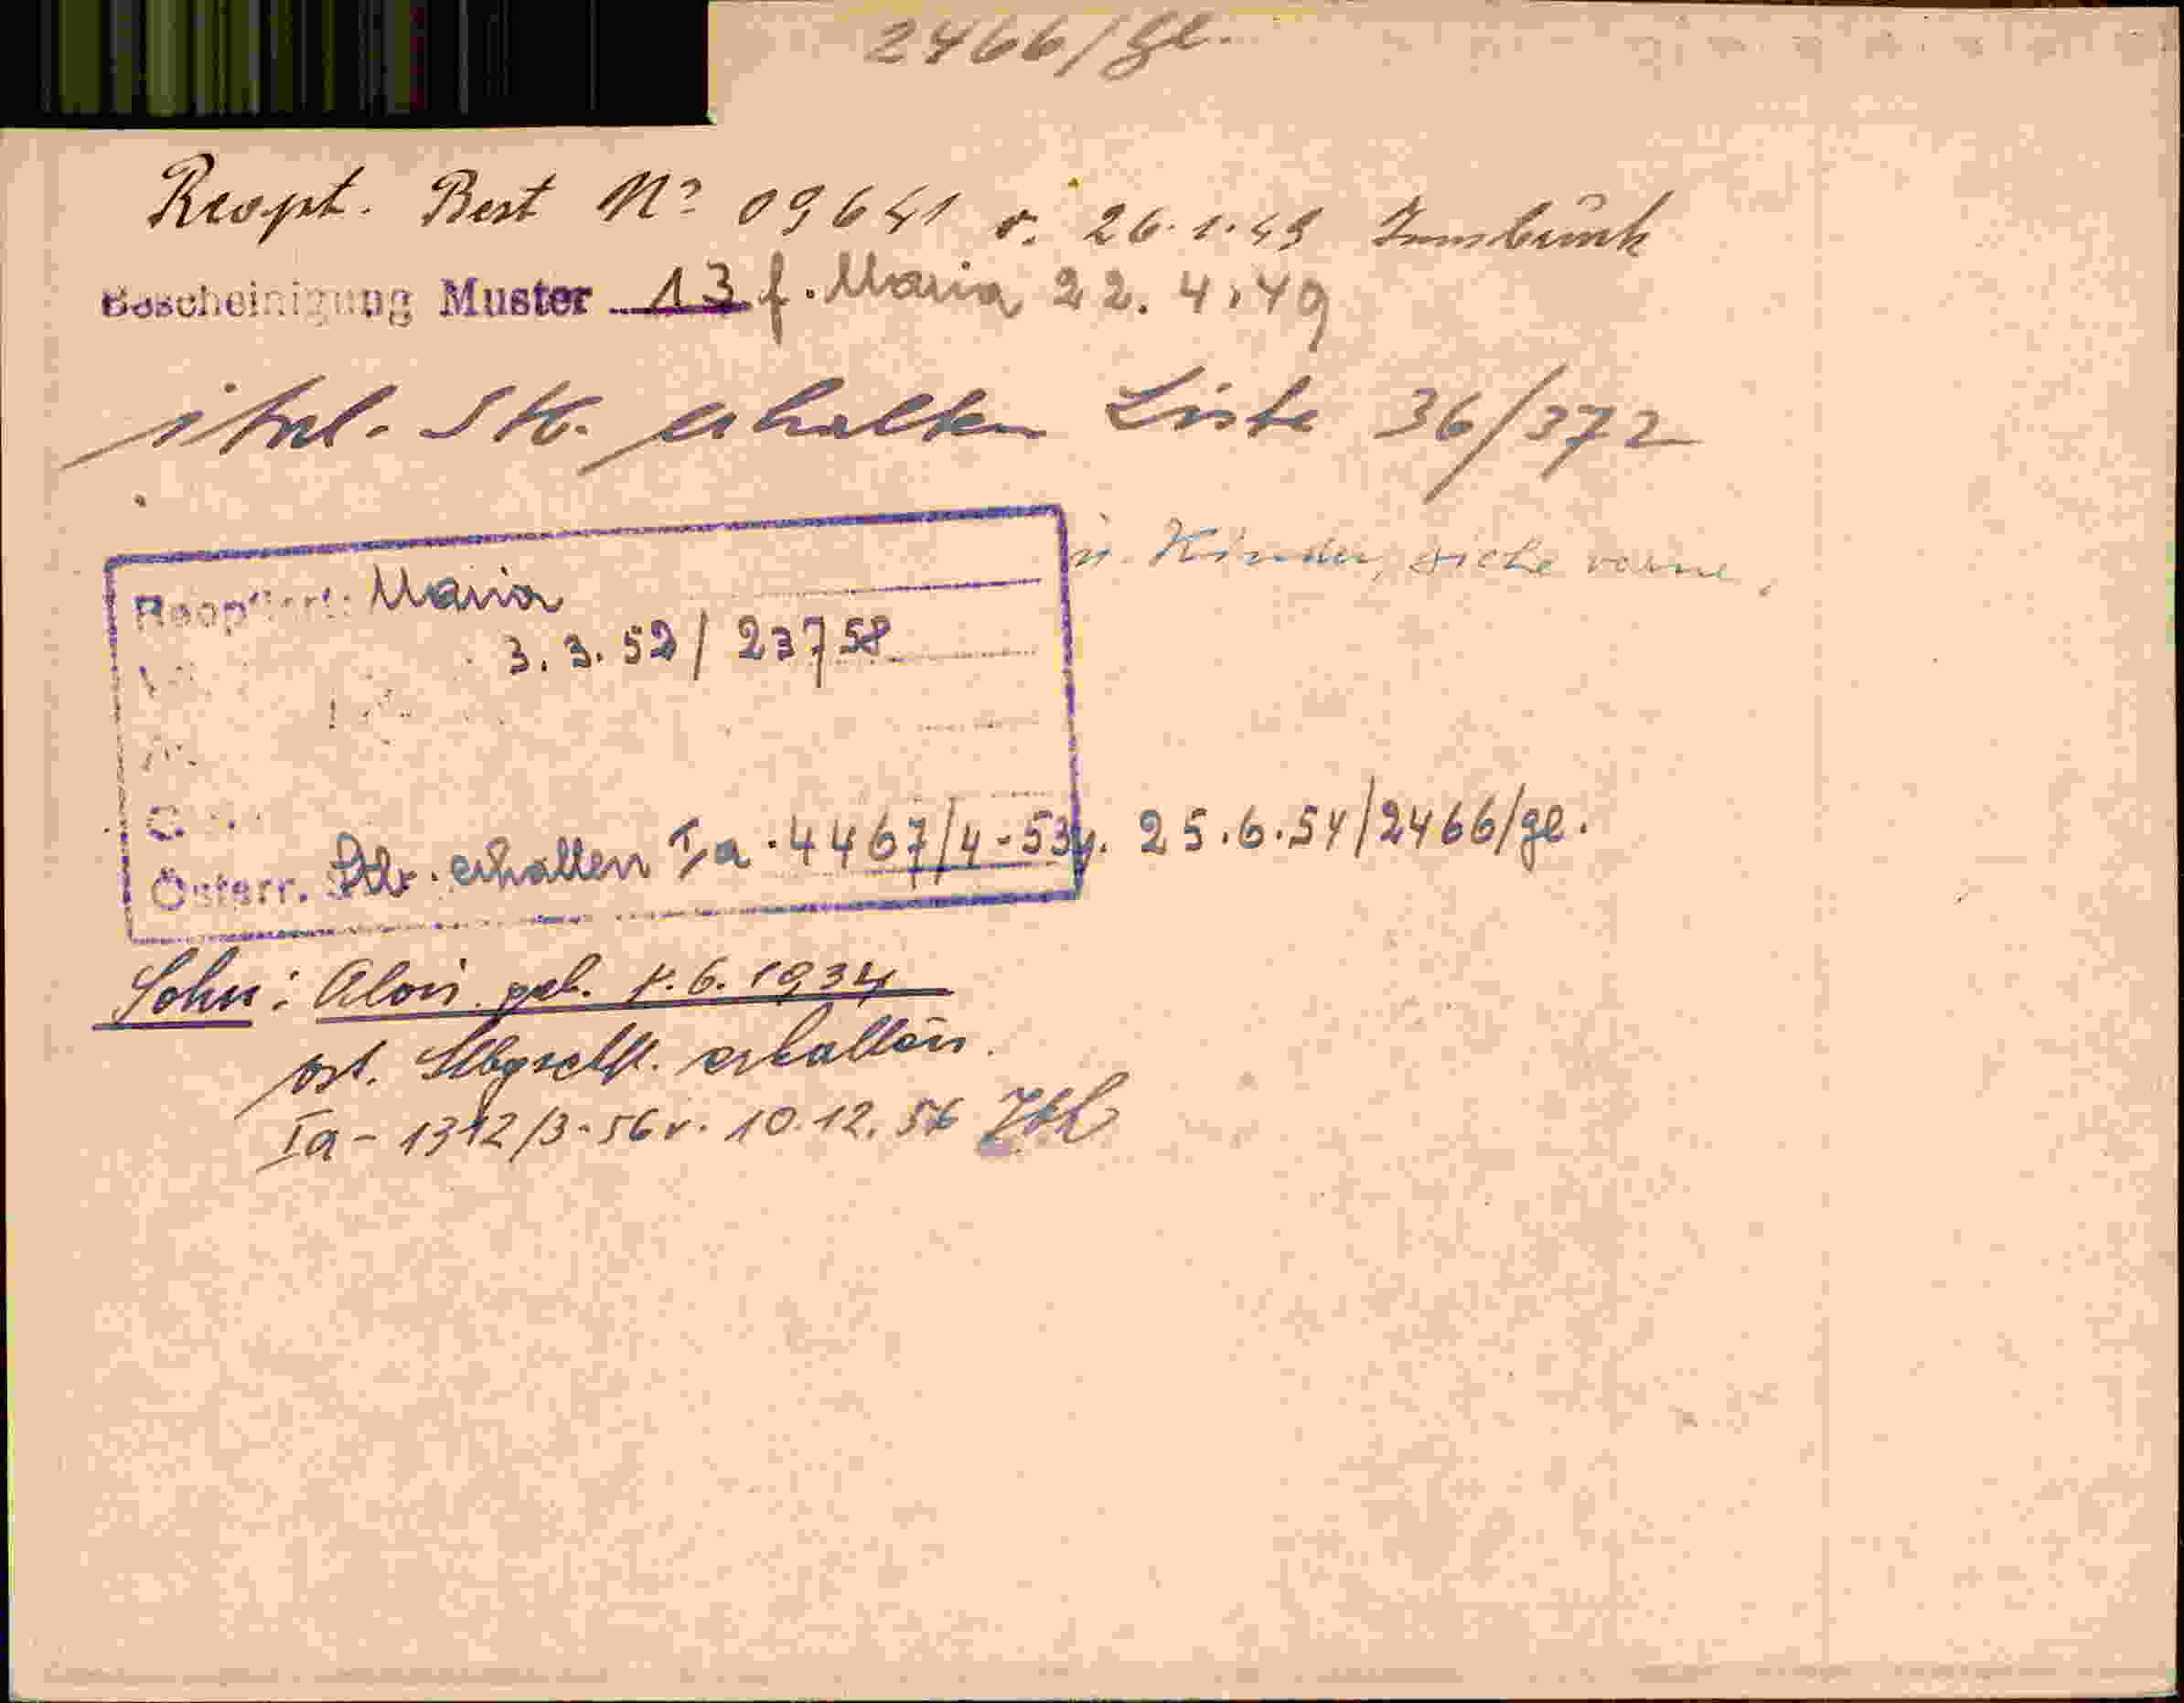 2466/gl.
Reopt. Best Nº 09641 v. 26.1.49 Innsbruck
Bescheinigung Muster 13 f. Maria 22.4.49
ital. Stb. erhalten Liste 36/372
u. Kinder, siehe vorne.
Reoptiert: Maria
3.3.52/23758
Österr. Stb. erhalten Ia-4467/4-53 v. 25.6.54/2466/gl.
Sohn: Alois geb. 6.1934
öst. Stbgschft. erhalten.
Ia-1312/3-56 v. 10.12.56